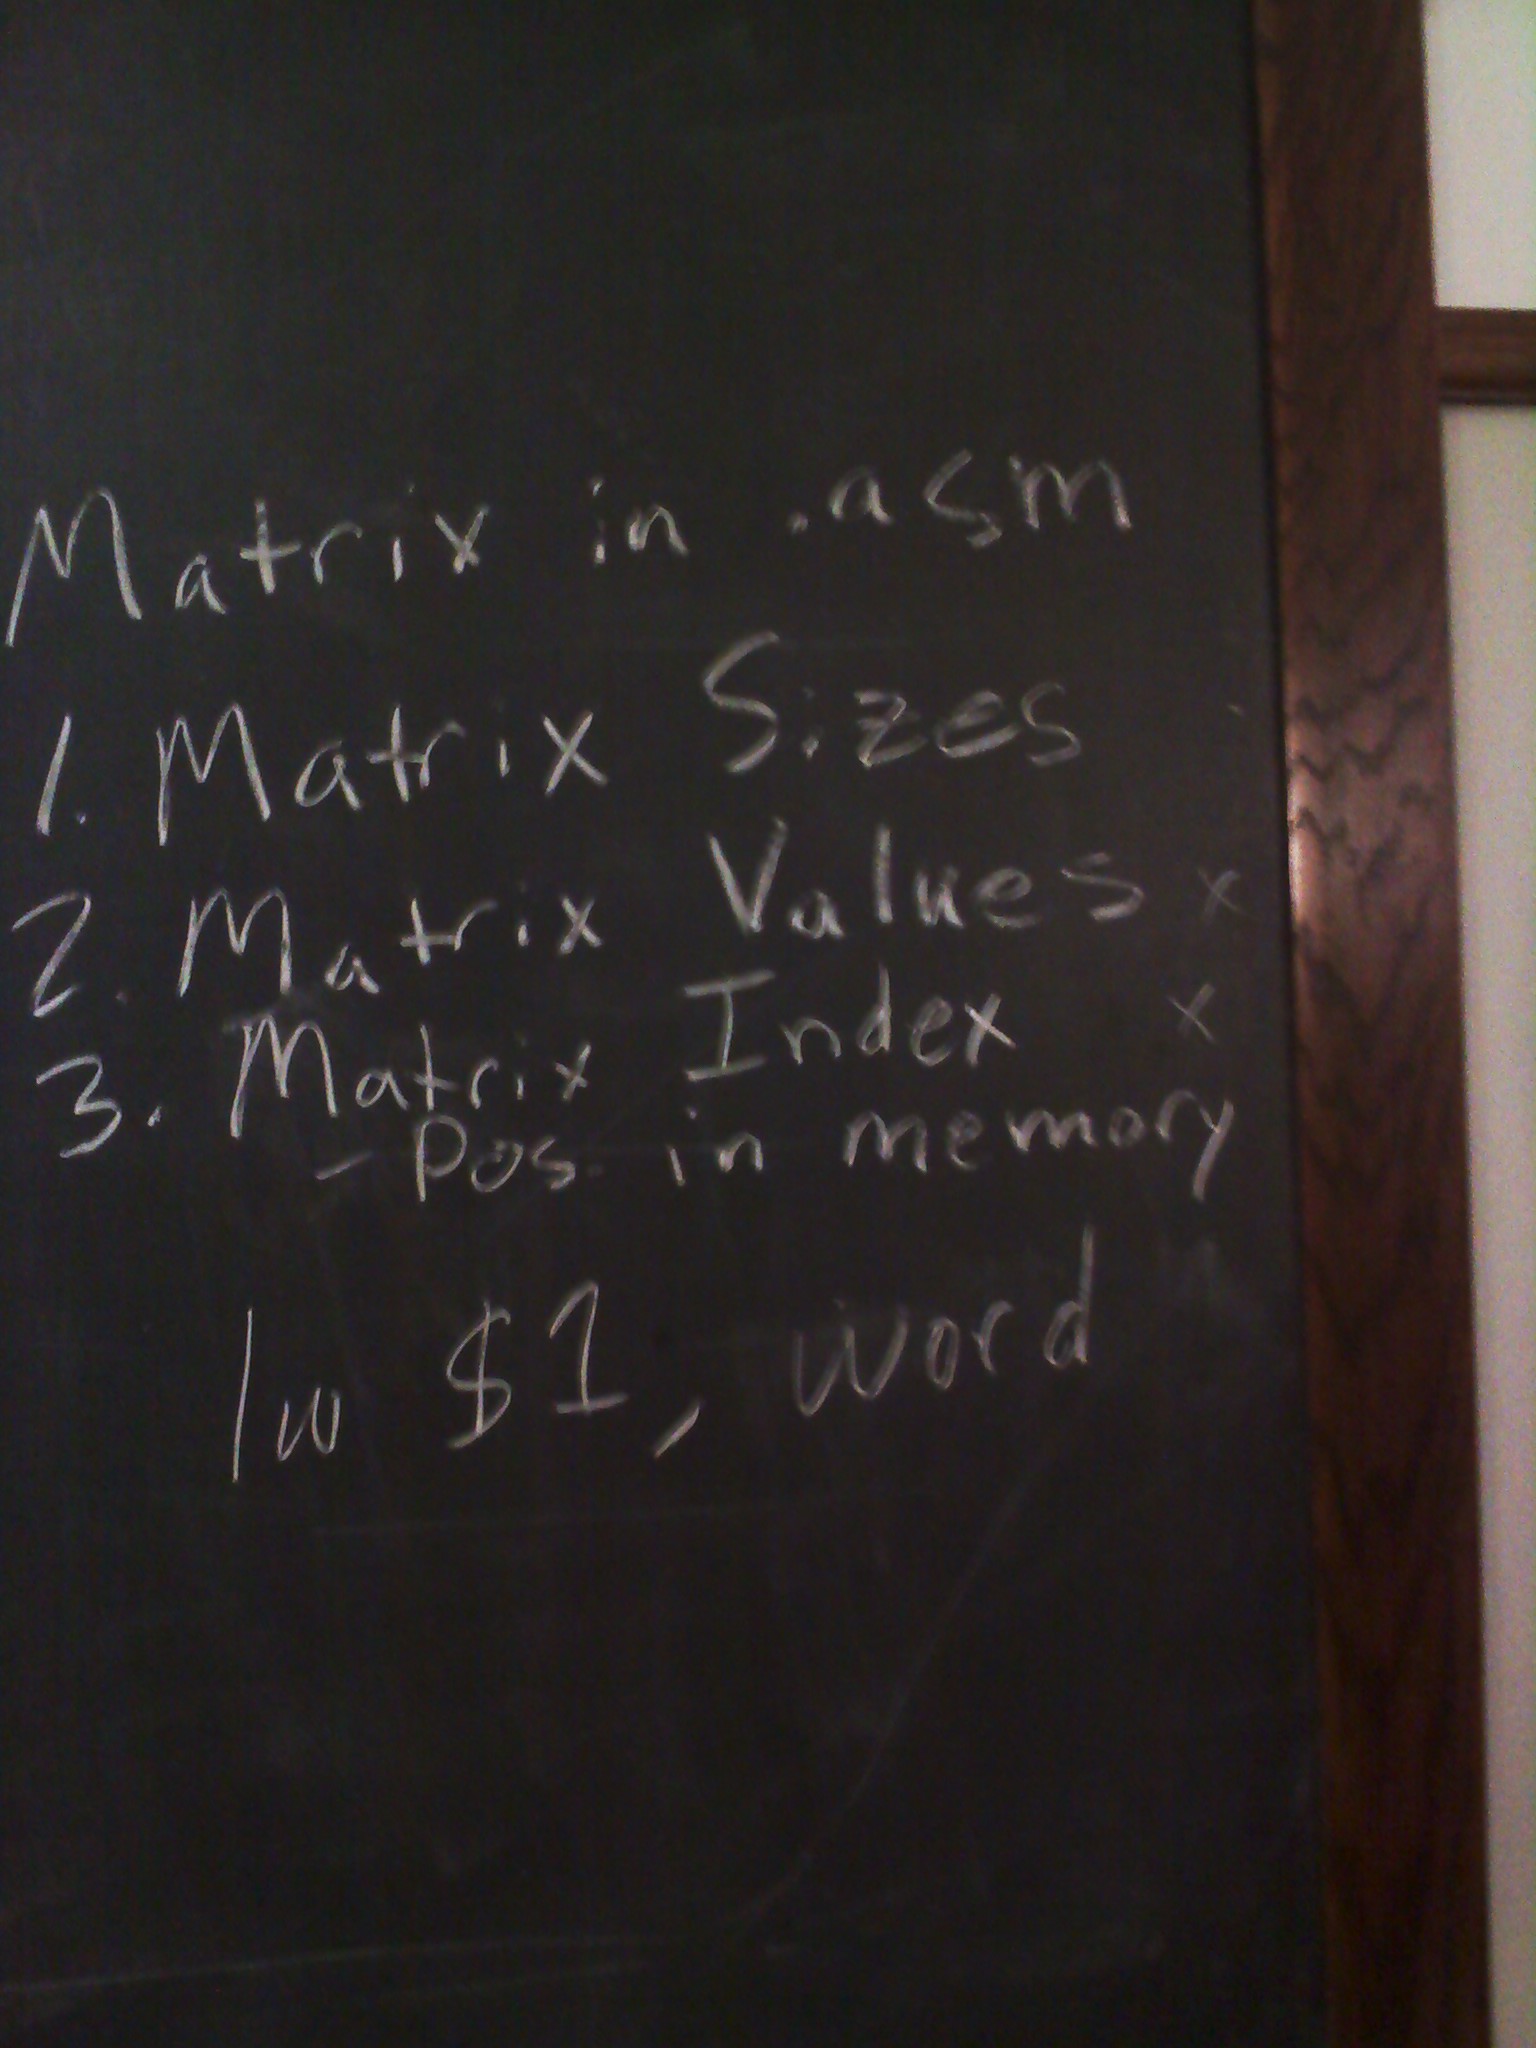 Matrix in .asm
1. Matrix Sizes
2. Matrix Values x
3. Matrix Index x
- Pos. in memory
lw $1, word